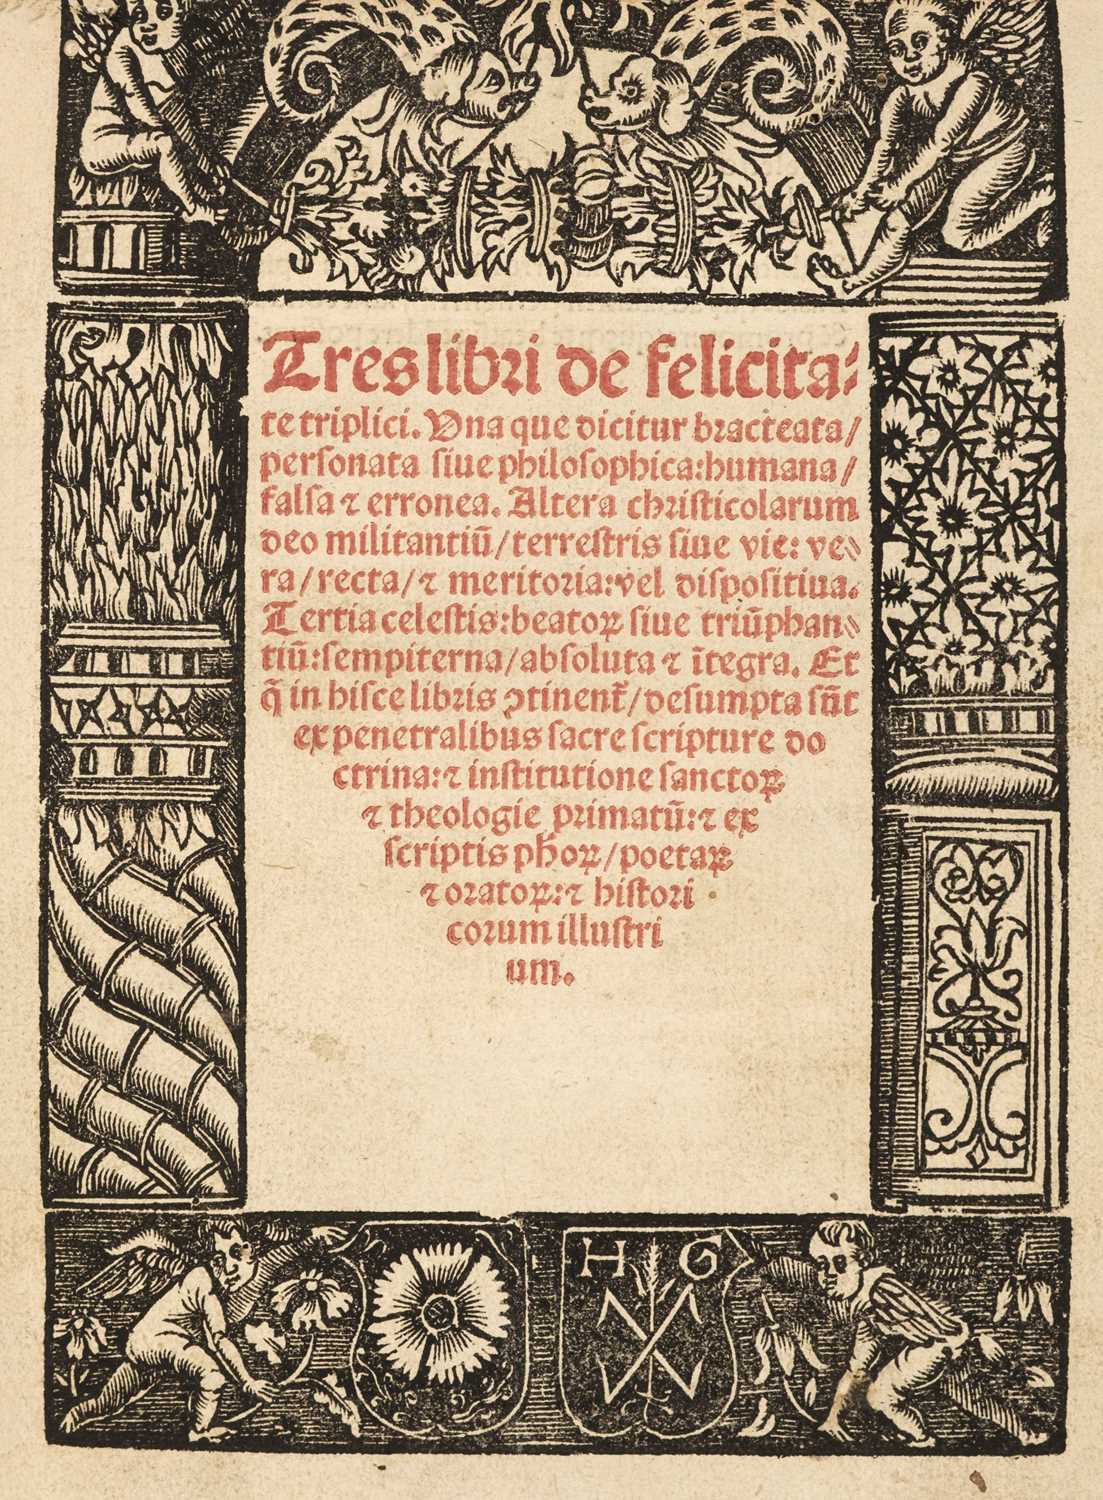 Tres libri de felicita⸗
te triplici. Vna que dicitur bracteata/
personata siue philosophica:humana/
falsa ⁊ erronea. Altera christicolarum
deo militantiū/terrestris siue vie: ve⸗
ra/recta/⁊ meritoria:vel dispositiua.
Tertia celestis:beatoꝝ siue triūphan⸗
tiū:sempiterna/absoluta ⁊ ītegra. Et
q̄ in hisce libris ꝯtinent̄/desumpta sūt
ex penetralibus sacre scripture do
ctrina:⁊ institutione sanctoꝝ
⁊ theologie primatū:⁊ ex
scriptis ph̄oꝝ/poetaꝝ
⁊ oratoꝝ:⁊ histori
corum illustri
um.
H G